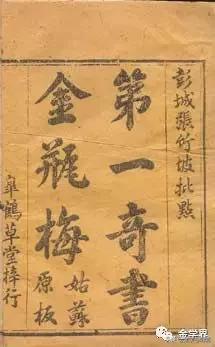 彭城張竹坡批點
第一奇書
金瓶梅
姑蘇原板
皐鶴草堂梓行
金学界